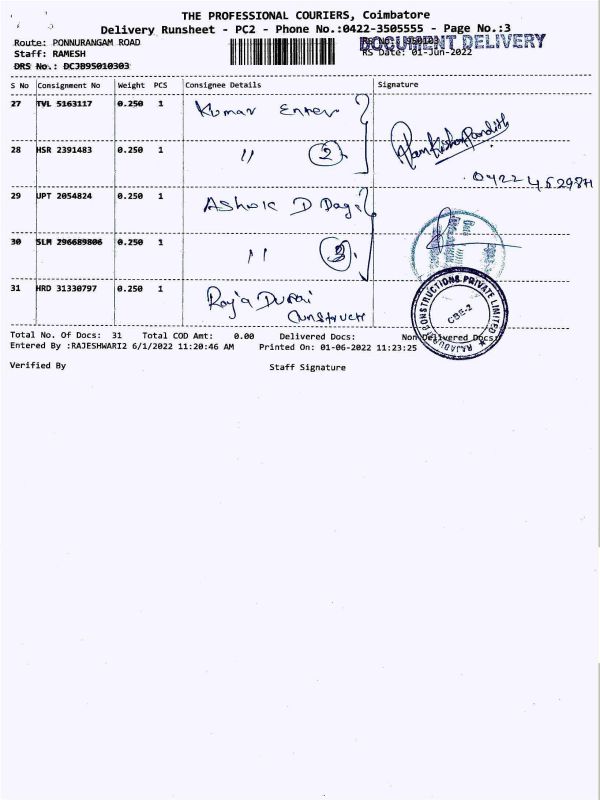 THE PROFESSIONAL COURIERS, Coimbatore
Delivery Runsheet - PC2 - Phone No.:0422-3505555 - Page No.:3
Route: PONNURANGAM ROAD
Staff: RAMESH
DRS No.: DCJB95010303
DOCUMENT DELIVERY
RS Date: 01-Jun-2022
S No Consignment No Weight PCS Consignee Details Signature
27 TVL 5163117 0.250 1 Kumar Enter
28 HSR 2391483 0.250 1 " 2
0422 452984
29 UPT 2054824 0.250 1 Ashok D
30 SLM 296689806 0.250 1 "
31 HRD 31330797 0.250 1 Raja Durai
Construct
RAJADURAI CONSTRUCTIONS PRIVATE LIMITED
CBE-2
Total No. Of Docs: 31 Total COD Amt: 0.00 Delivered Docs: Non Delivered Docs:
Entered By :RAJESHWARI2 6/1/2022 11:20:46 AM Printed On: 01-06-2022 11:23:25
Verified By Staff Signature